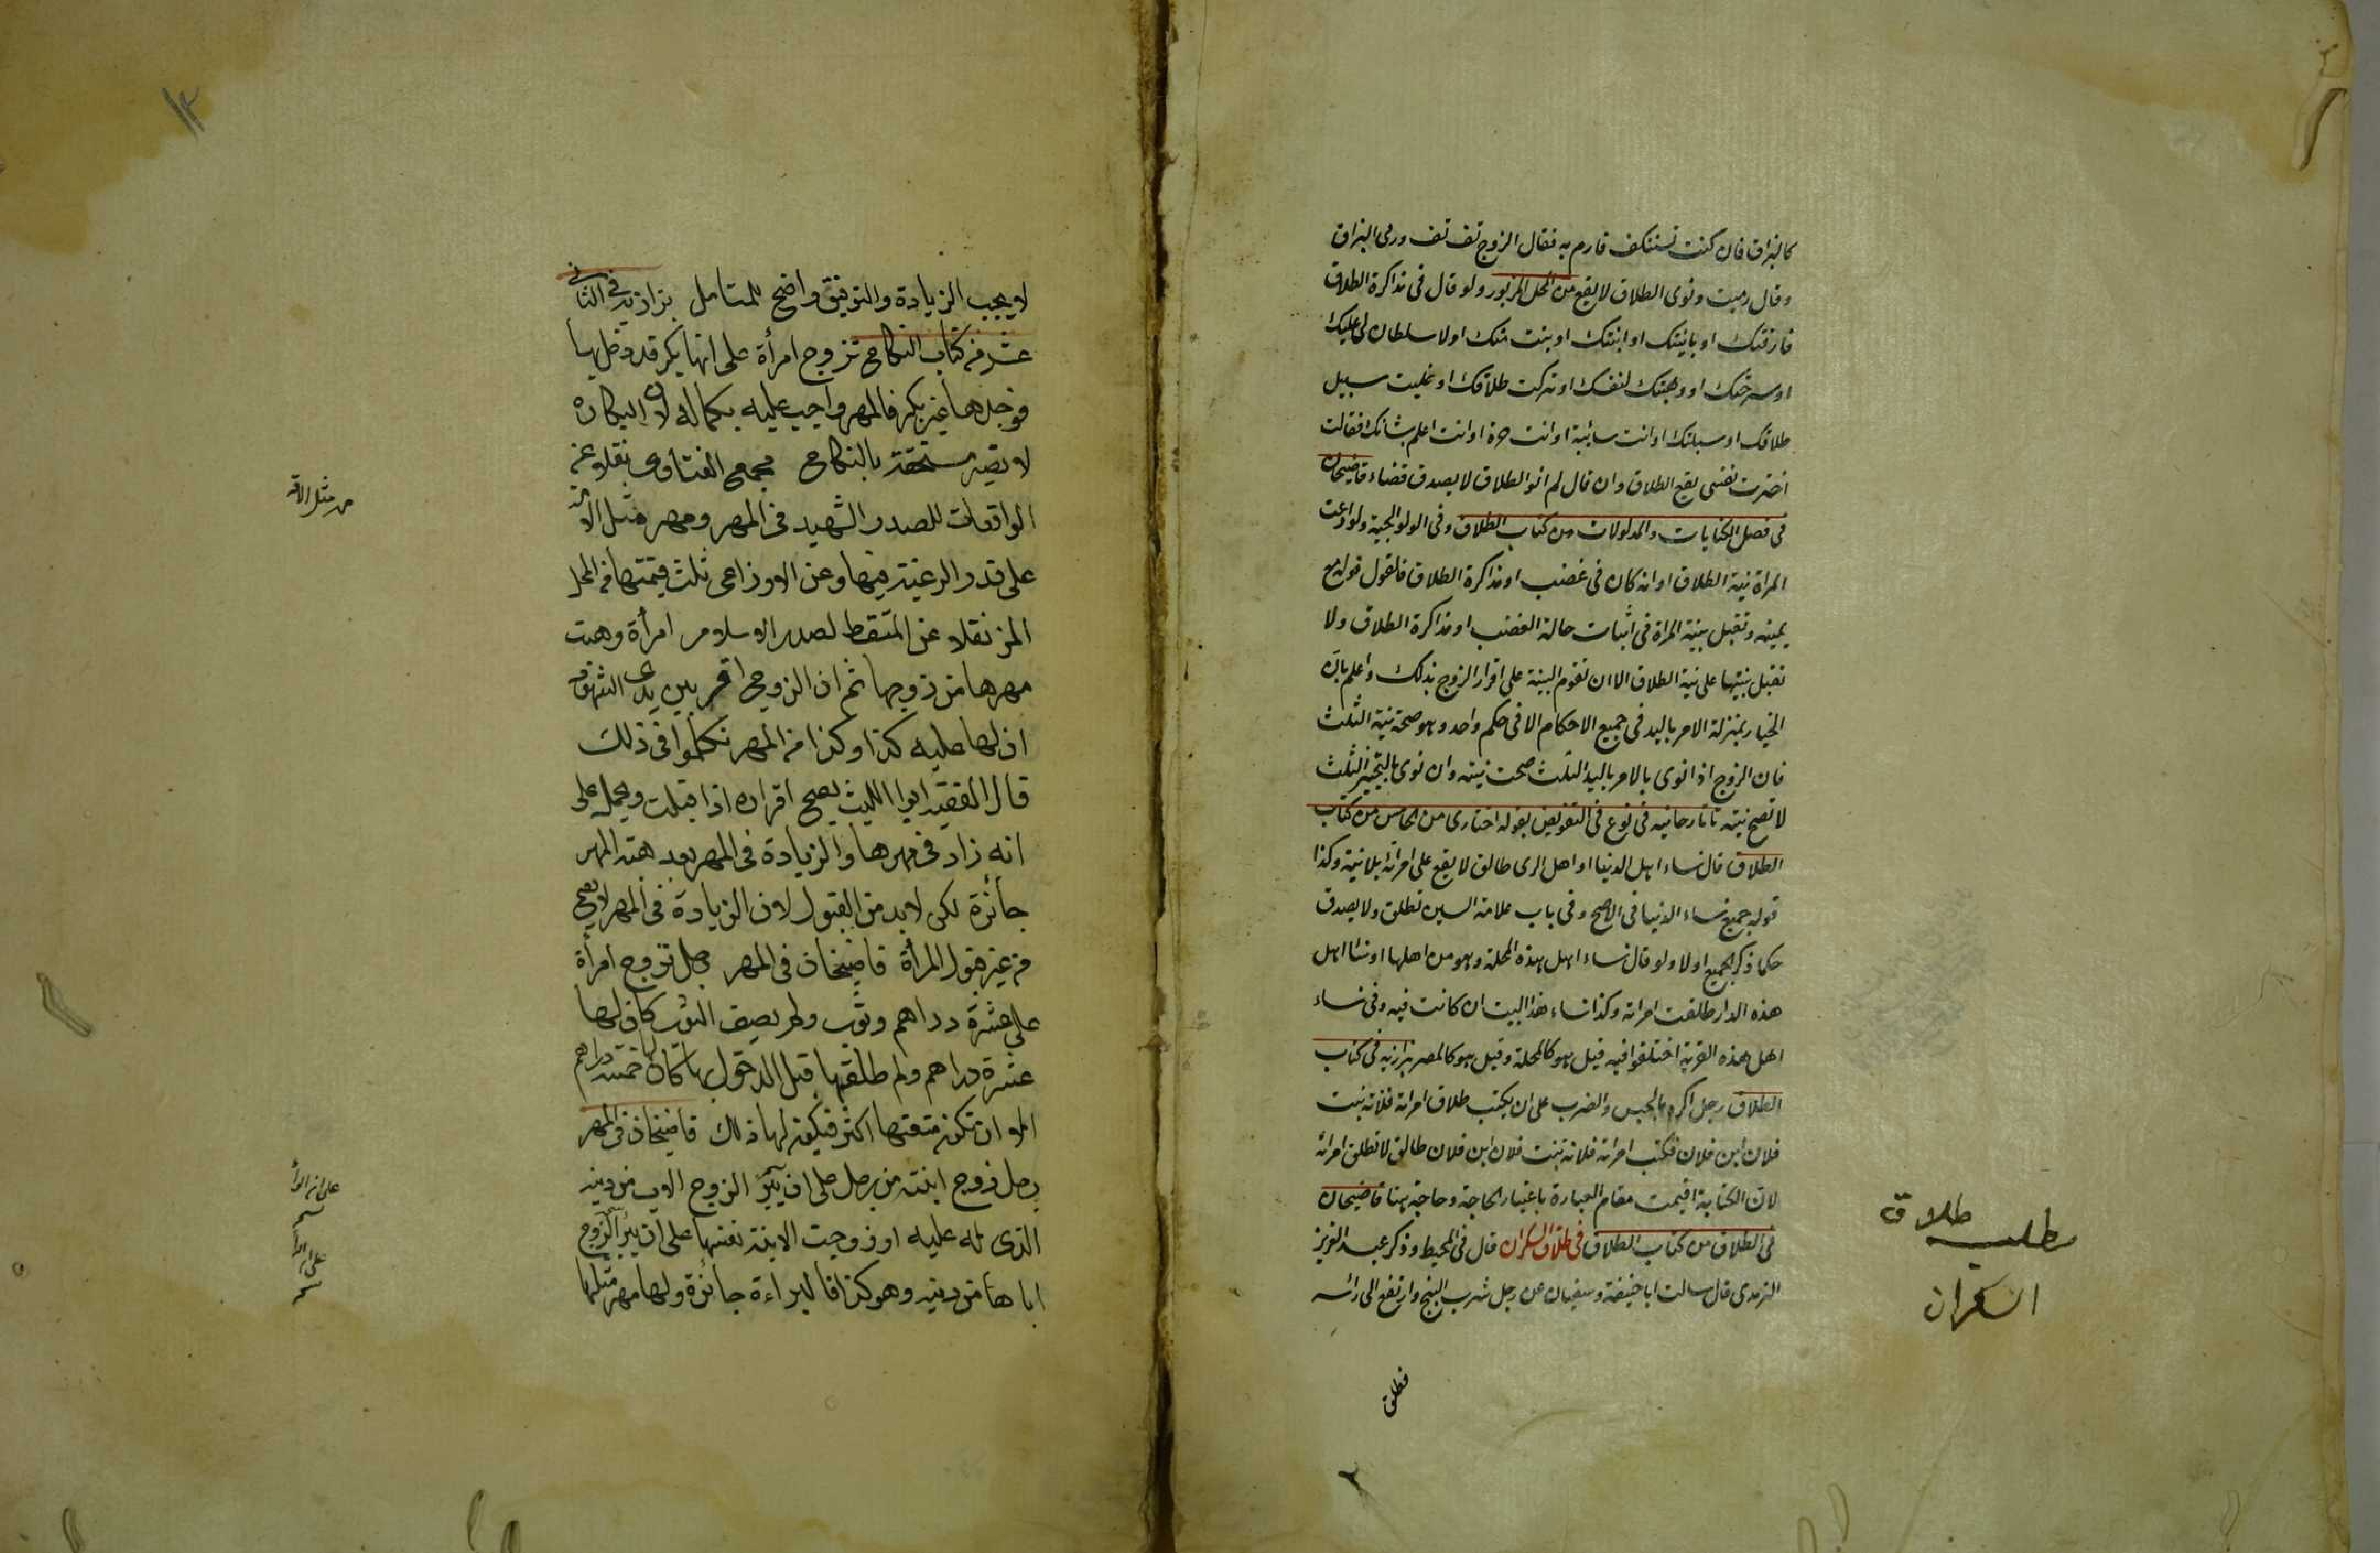 كالبزاق فان كنت تستنكف فارم به فقال الزوج تف تف ورمى البزاق
وقال رميت ونوى الطلاق لا يقع من المحل المزبور ولو قال فى مذاكرة الطلاق
فارقتك او باينتك او ابنتك او بنت منك او لا سلطان لى عليك
او سرحتك او وهبتك لنفسك او تركت طلاقك او خليت سبيل
طلاقك او سبيلك او انت سائبة او انت حرة او انت اعلم بشانك فقالت
اخترت نفسى يقع الطلاق وان قال لم انو الطلاق لا يصدق قضاء قاضيخان
فى فصل الكنايات والمدلولات من كتاب الطلاق وفى الولوالجية ولو ادعت
المراة نية الطلاق او انه كان فى غضب او مذاكرة الطلاق فالقول قوله مع
يمينه وتقبل بينة المراة فى اثبات حالة الغضب او مذاكرة الطلاق ولا
تقبل بينتها على نية الطلاق الا ان تقوم البينة على اقرار الزوج بذلك واعلم بان
الخيار بمنزلة الامر باليد فى جميع الاحكام الا فى حكم واحد وهو صحة نية الثلث
فان الزوج اذا نوى بالامر باليد الثلث صحت نيته وان نوى بالتخيير الثلث
لا تصح نيته تاتارخانيه فى نوع فى التفويض بقوله اختارى من الخامس من كتاب
الطلاق قال نساء اهل الدنيا او اهل الرى طالق لا يقع على امراته بلا نية وكذا
قوله جميع نساء الدنيا فى الاصح وفى باب علامة السين تطلق ولا يصدق
حكما ذكر الجميع اولا ولو قال نساء اهل هذه المحلة وهو من اهلها او نساء اهل
هذه الدار طلقت امراته وكذا نساء هذا البيت ان كانت فيه وفى نساء
اهل هذه القرية اختلفوا فيه قيل هو كالمحلة وقيل هو كالمصر بزازيه فى كتاب
الطلاق رجل اكره بالحبس والضرب على ان يكتب طلاق امراته فلانة بنت
فلان ابن فلان فكتب امراته فلانة بنت فلان ابن فلان طالق لا تطلق امراته
لان الكتابة اقيمت مقام العبارة باعتبار الحاجة ولا حاجة هنا قاضيخان
فى الطلاق من كتاب الطلاق فى طلاق السكران قال فى المحيط وذكر عبد العزيز
الترمذى قال سالت ابا حنيفة وسفيان عن رجل شرب البنج وارتفع الى رأسه
فطلق
مطلب طلاق
السكران
١٣
لا يجب الزيادة والتوفيق واضح للمتامل بزازيه فى الثانى
عشر من كتاب النكاح تزوج امرأة على انها بكر فدخل بها
فوجدها غير بكر فالمهر واجب عليه بكماله لان البكارة
لا تصير مستحقة بالنكاح مجمع الفتاوى نقلا عن
الواقعات للصدر الشهيد فى المهر ومهر مثل الامة
على قدر الرغبة فيها وعن الاوزاعى ثلث قيمتها من المحل
المز نقلا عن الملتقط لصدر الاسلام امرأة وهبت
مهرها من زوجها ثم ان الزوج اقر بين يدى الشهود
ان لها عليه كذا وكذا من المهر تكلموا فى ذلك
قال الفقيه ابوا الليث يصح اقراره اذا قبلت ويحمل على
انه زاد فى مهرها والزيادة فى المهر بعد هبة المهر
جائزة لكن لا بد من القبول لان الزيادة فى المهر لا يصح
من غير قبول المرأة قاضيخان فى المهر رجل تزوج امرأة
على عشرة دراهم وثوب ولم يصف الثوب كان لها
عشرة دراهم ولو طلقها قبل الدخول بها كان لها خمسة دراهم
الا ان تكون متعتها اكثر فيكون لها ذلك قاضيخان فى المهر
رجل زوج ابنته من رجل على ان يبرئ الزوج الاب من دينه
الذى له عليه او زوجت الابنة نفسها على ان يبرئ الزوج
اباها من دينه وهو كذا فالبراءة جائزة ولها مهر مثلها
مهر مثل الامة